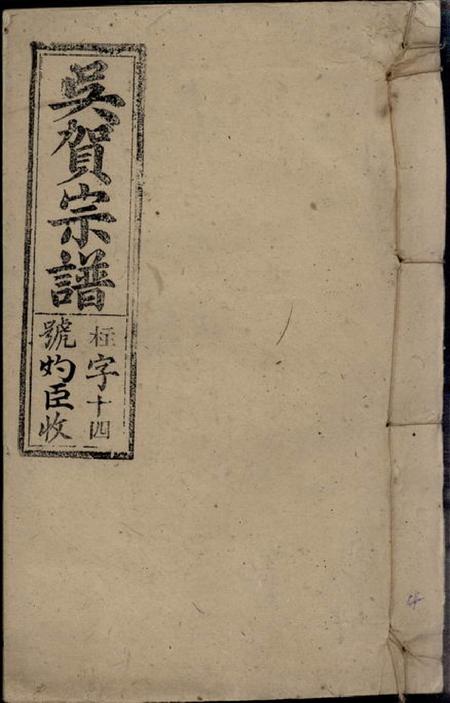 吳賀宗譜
字十四
號灼臣收